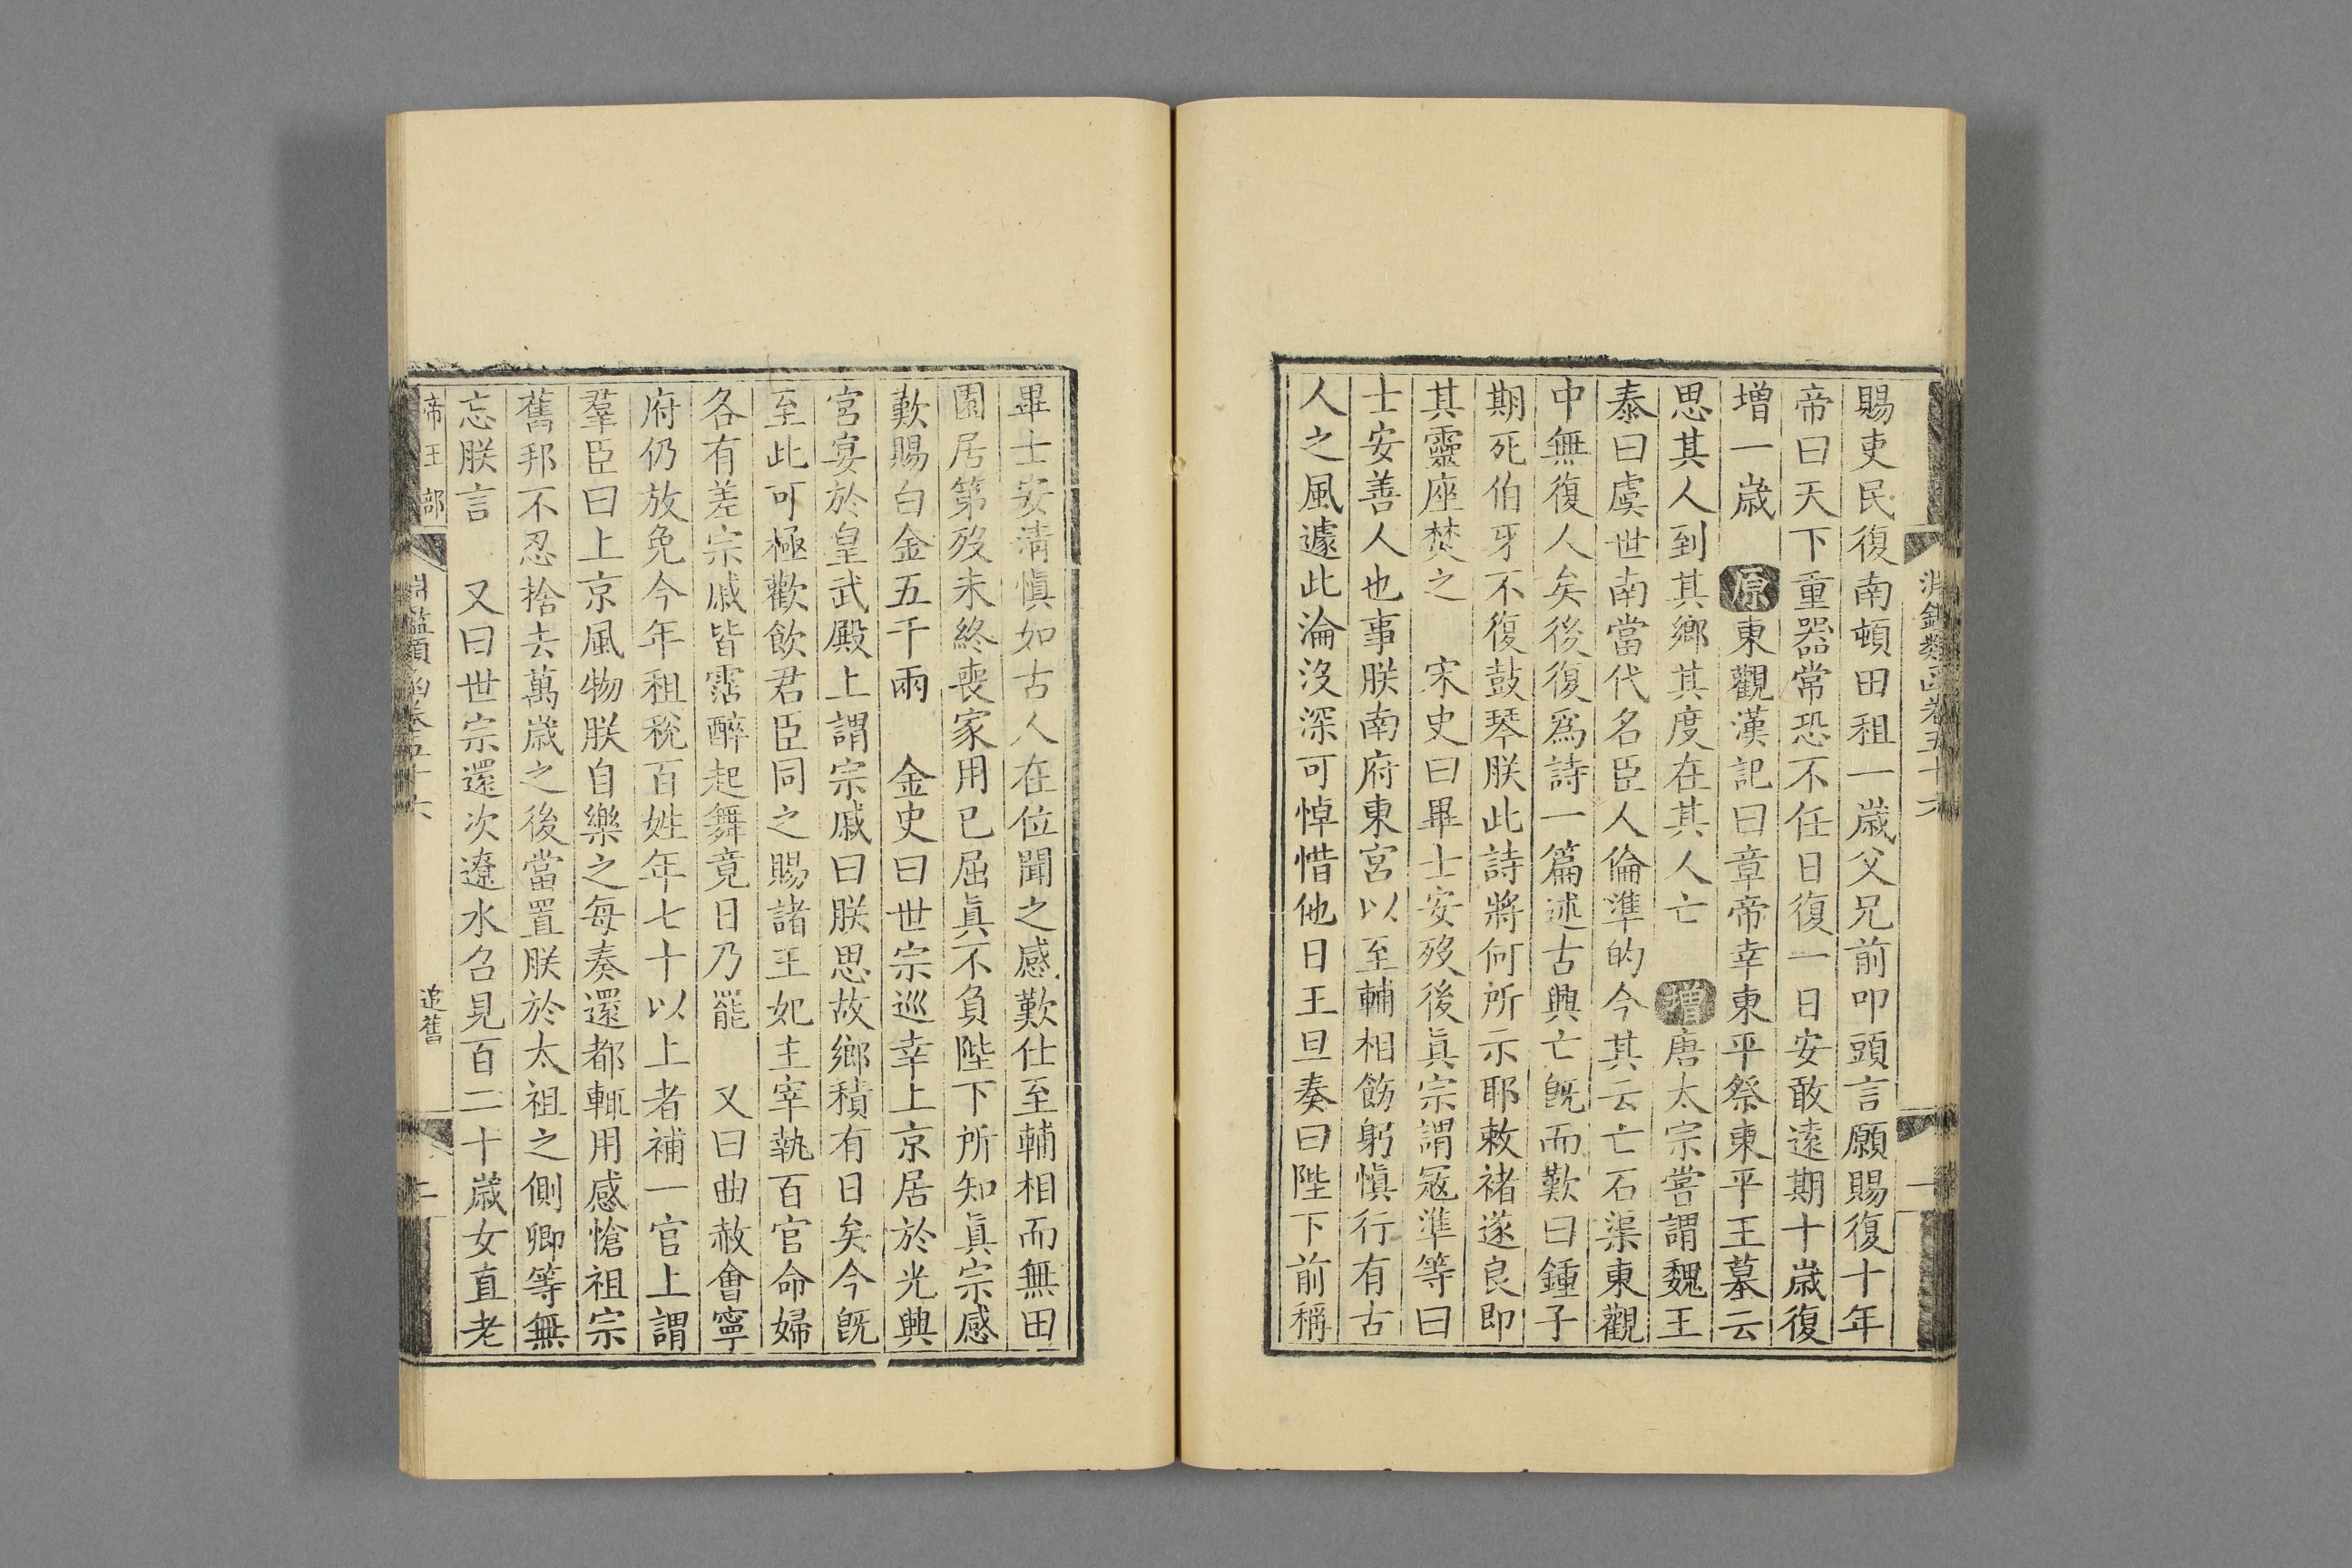 賜吏民復南頓田租一歲父兄前叩頭言願賜復十年
帝曰天下重器常恐不任日復一日安敢遠期十歲復
增一歲　原東觀漢記曰章帝幸東平祭東平王墓云
思其人到其鄉其度在其人亡　增唐太宗嘗謂魏王
泰曰虞世南當代名臣人倫準的今其云亡石渠東觀
中無復人矣後復爲詩一篇述古興亡旣而歎曰鍾子
期死伯牙不復鼓琴朕此詩將何所示耶敕褚遂良即
其靈座焚之　宋史曰畢士安歿後眞宗謂冦準等曰
士安善人也事朕南府東宮以至輔相飭躬愼行有古
人之風遽此淪沒深可悼惜他日王旦奏曰陛下前稱
畢士安清愼如古人在位聞之感歎仕至輔相而無田
園居第歿未終喪家用已屈眞不負陛下所知眞宗感
歎賜白金五千兩　金史曰世宗巡幸上京居於光興
宮宴於皇武殿上謂宗戚曰朕思故鄉積有日矣今旣
至此可極歡飲君臣同之賜諸王妃主宰執百官命婦
各有差宗戚皆霑醉起舞竟日乃罷　又曰曲赦會寧
府仍放免今年租稅百姓年七十以上者補一官上謂
羣臣曰上京風物朕自樂之每奏還都輒用感愴祖宗
舊邦不忍捨去萬歲之後當置朕於太祖之側卿等無
忘朕言　又曰世宗還次遼水召見百二十歲女直老
帝王部　卷五十六　追舊　二